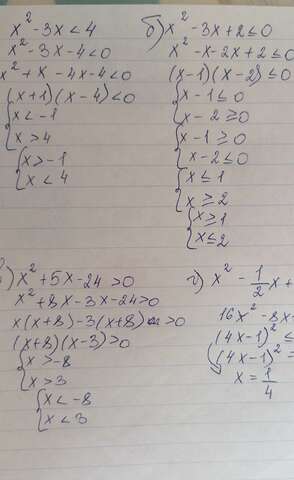 x² - 3x < 4
x² - 3x - 4 < 0
x² + x - 4x - 4 < 0
(x+1)(x-4) < 0
{x < -1
{x > 4
{x > -1
{x < 4
б) x² - 3x + 2 ≤ 0
x² - x - 2x + 2 ≤ 0
(x-1)(x-2) ≤ 0
{x - 1 ≤ 0
{x - 2 ≥ 0
{x - 1 ≥ 0
{x - 2 ≤ 0
{x ≤ 1
{x ≥ 2
{x ≥ 1
{x ≤ 2
) x² + 5x - 24 > 0
x² + 8x - 3x - 24 > 0
x(x+8) - 3(x+8) > 0
(x+8)(x-3) > 0
{x > -8
{x > 3
{x < -8
{x < 3
г) x² - 1/2 x +
16x² - 8x
(4x-1)² ≤
(4x-1)² =
x = 1/4